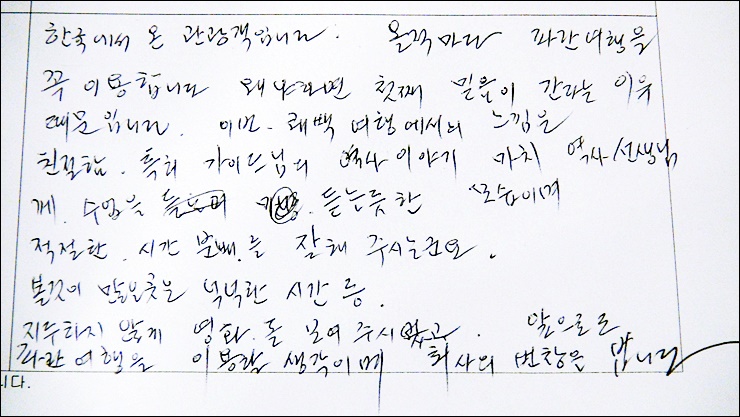 한국에서 온 관광객입니다. 올적마다 파란여행을
꼭 이용합니다 왜냐하면 첫째 믿음이 간다는 이유
때문입니다. 이번. 쾌백 여행에서의 느낌은
친절함. 특히 가이드님의 역사이야기 마치 역사선생님
께. 수업을 듣는듯한 모습이며
적절한. 시간 분배.를 잘해 주시는군요.
볼것이 많은곳은 넉넉한 시간 등.
지루하지 않게 영화.를 보여 주시었고. 앞으로도
파란여행을 이용할 생각이며 회사의 번창을 빕니다
니다.